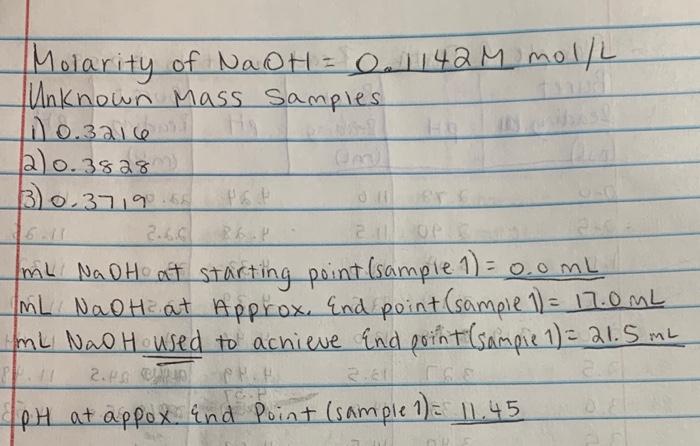 Molarity of NaOH = 0.1142M mol/L
Unknown Mass Samples
1) 0.3216
2) 0.3828
3) 0.3719
mL NaOH at starting point (sample 1) = 0.0 mL
mL NaOH at Approx. End point (sample 1) = 17.0 mL
mL NaOH used to achieve End point (sample 1) = 21.5 mL
pH at appox. End Point (sample 1) = 11.45